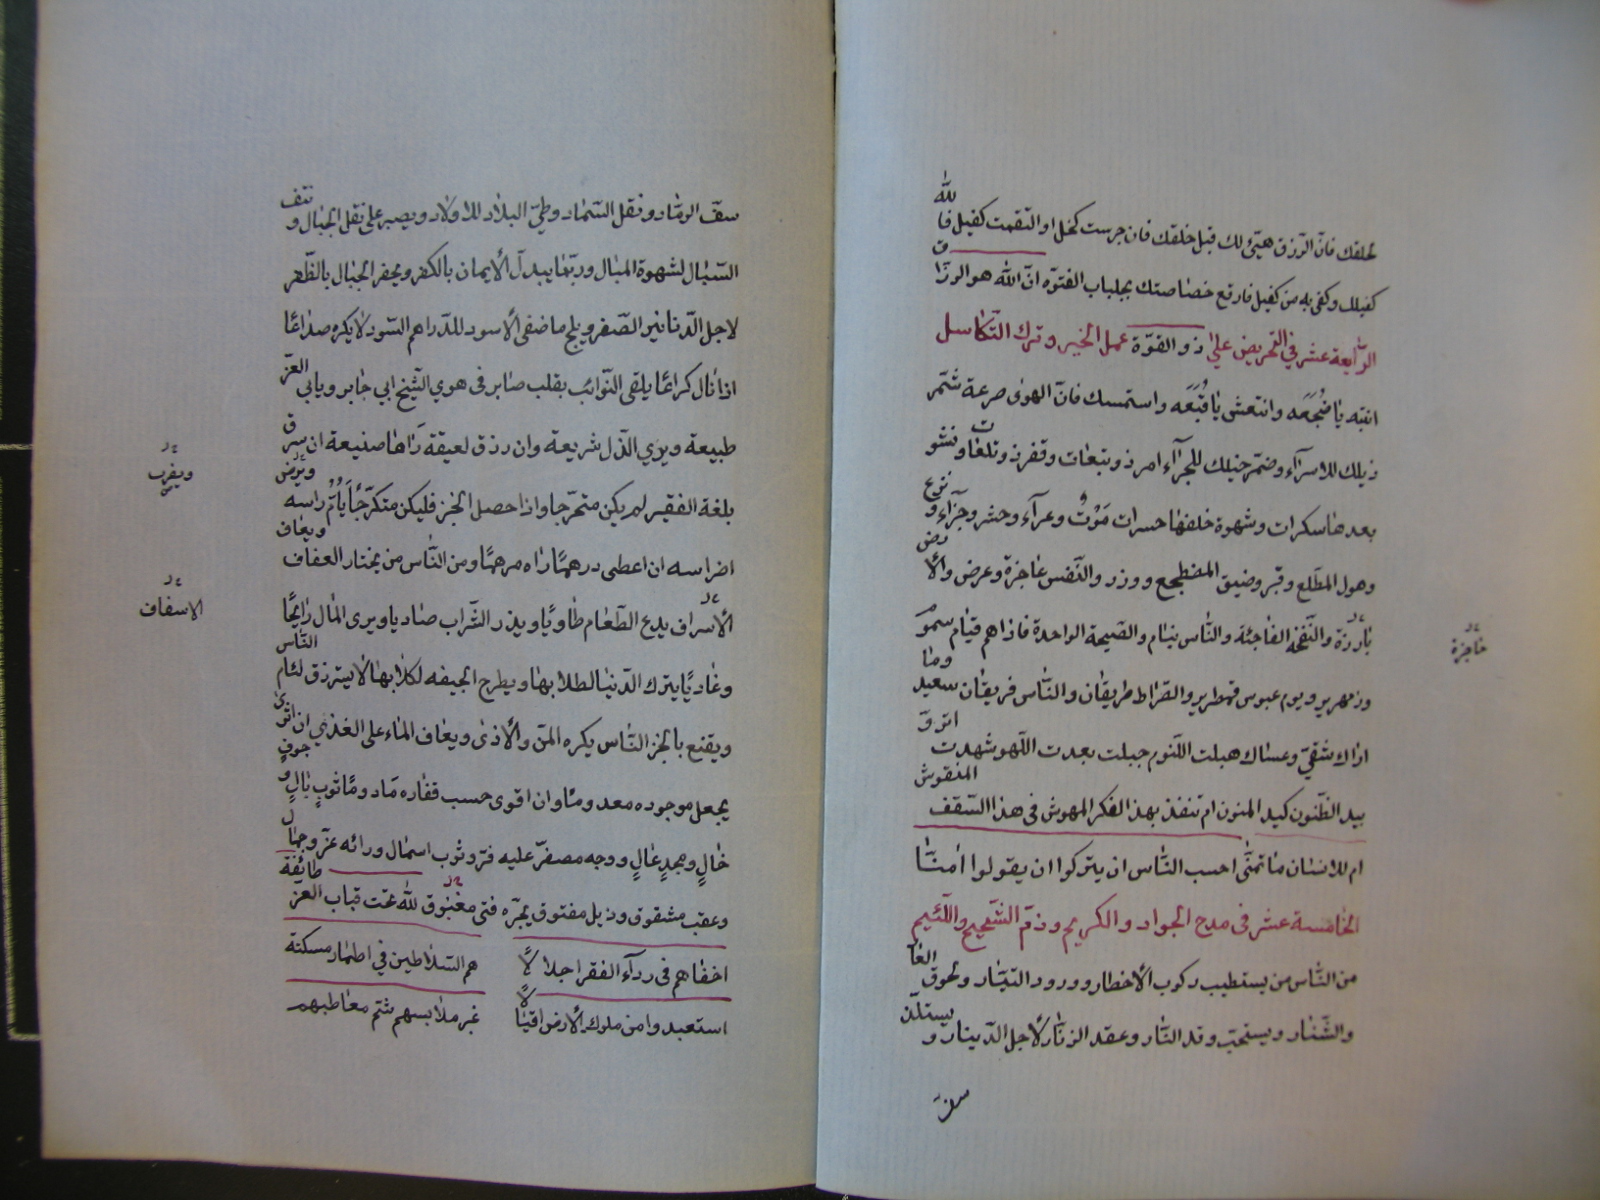 لحلقك فان الرزق هيئ لك قبل خلقك فان حرست كنحل او التقمت كفيل فالله
كفيلك وكفى به من كفيل فارقع خصاصتك بجلباب الفتوه ان الله هو الرزاق
ذو القوة الرابعة عشر في التحريض على عمل الخير وترك التكاسل
انتبه يا ضجعه وانتعش يا قبعه واستمسك فان الهوى صرعة شمر
ذيلك للاسرآء وضمر خيلك للجرآء امر ذو تبعات وقفر ذو تلعات ونشو
بعدها سكرات وشهوة خلفها حسرات موت وعرآء وحشر وجزآء ونزع
وهول المطلع وقبر وضيق المضطجع ووزر والنفس عاجزة وعرض والارض
بارزة والنفخه الفاجئة والناس نيام والصيحة الواحدة فاذا هم قيام سموم
حاجزة
وزمهرير ويوم عبوس قمطرير والصراط طريقان والناس فريقان سعيد وما
اراك شقي وعساك هبلت اللنوم جبلت بعدت اللهو شهدت اترق
بيد الظنون كيد المنون ام تنفذ بهذ الفكر المهوش في هذا السقف المنقوش
ام للانسان ما تمنى احسب الناس ان يتركوا ان يقولوا امنا
الخامسة عشر فى مدح الجواد والكريم وذم الشحيح واللئيم
من الناس من يستطيب ركوب الاخطار وورود التيار ولحوق العار
والشنار ويستحب وقد النار وعقد الزنار لاجل الدينار ويستلذ
سف
سف الرماد ونقل السماد وطي البلاد للاولاد ويصبر على نقل الجبال ونتف
السبال لشهوة المبال وربما يبدل الايمان بالكفر ويحفر الجبال بالظفر
لاجل الدنانير الصفر ويلج ماضغي الاسود للدراهم السود لا يكره صداعا
اذا نال كراعا يلقى النوائب بقلب صابر فى هوي الشيخ ابي جابر ويابى العز
طبيعة ويري الذل شريعة وان رزق لعيقة رآها صنيعة ان سرق
ويفرب
بلغة الفقير لم يكن متحرجا واذا حصل الخبز فليكن متكرجا يأم راسه ويرض
اضراسه ان اعطى درهما راه مرهما ومن الناس من يختار العفاف ويعاف
الاسفاف
الاسراف يدع الطعام طاويا ويذر الشراب صاديا ويرى المال رايحا
وغاديا يترك الدنيا لطلابها ويطرح الجيفه لكلابها لا يسترزق لئام الناس
ويقنع بالخبز الناس يكره المن والاذى ويعاف الماء على القذي ان اثرى
يجعل موجوده معدوما وان اقوى حسب قفاره مادوما ثوب بال وجوف
خال ومجد عال ووجه مصفر عليه فر وثوب اسمال ورائه عز وجمال
وعقب مشقوق وذيل مفتوق يجره فتى مغبوق لله تحت قباب العز طائفة
اخفاهم فى ردآء الفقر اجلالا هم السلاطين في اطمار مسكنة
استعبدوا من ملوك الارض اقيالا غبر ملابسهم شم معاطسهم